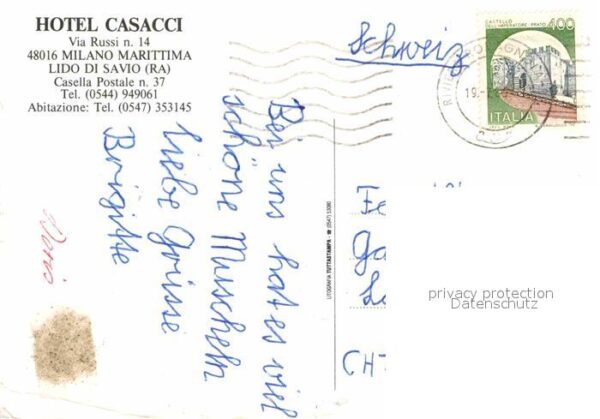 HOTEL CASACCI
Via Russi n. 14
48016 MILANO MARITTIMA
LIDO DI SAVIO (RA)
Casella Postale n. 37
Tel. (0544) 949061
Abitazione: Tel. (0547) 353145
Schweiz
CASTELLO
DELL'IMPERATORE - PRATO
400
ITALIA
19.
Bei uns hat es viel
schöne Muscheln
liebe Grüsse
Brigitte
LITOGRAFIA TUTTASTAMPA - ☎ (0547) 53080
CH-
privacy protection
Datenschutz